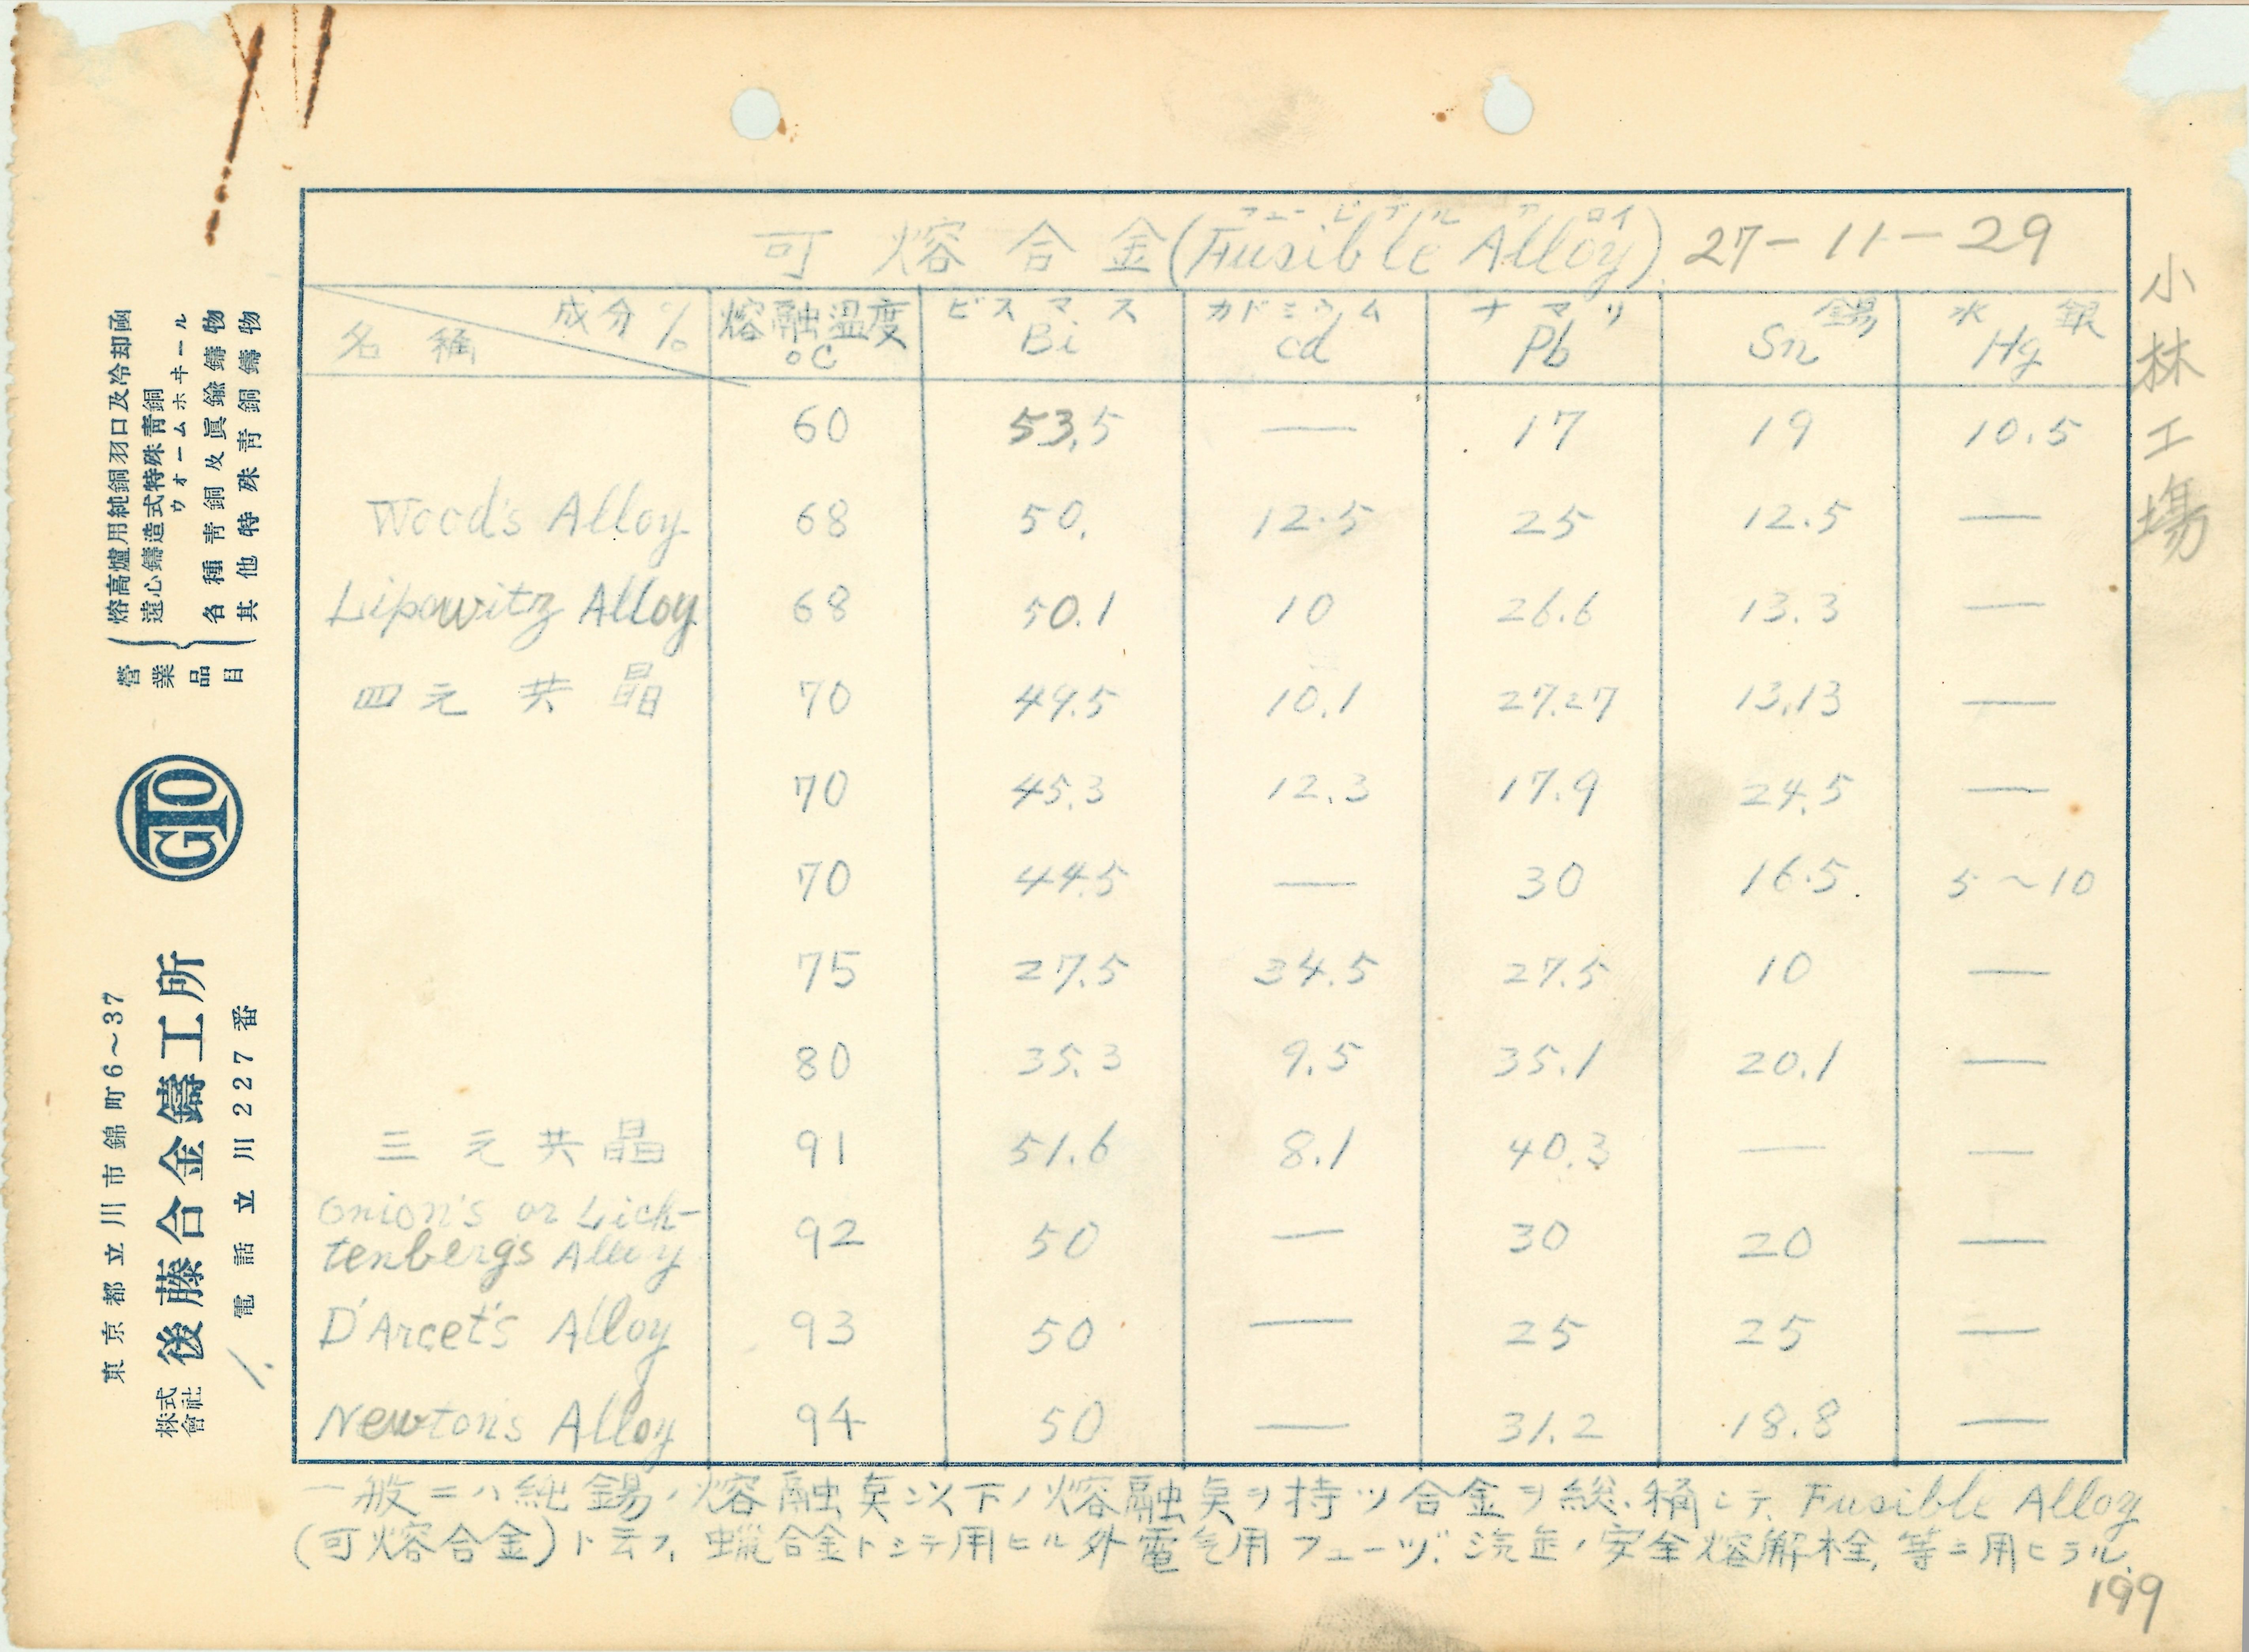 フュージブル アロイ
可熔合金(Fusible Alloy) 27-11-29
名稱 成分% 熔融温度 °C ビスマス Bi カドミウム cd ナマリ Pb 錫 Sn 水銀 Hg
60 53.5 — 17 19 10.5
Wood's Alloy 68 50. 12.5 25 12.5 —
Lipowitz Alloy 68 50.1 10 26.6 13.3 —
四元共晶 70 49.5 10.1 27.27 13.13 —
70 45.3 12.3 17.9 24.5 —
70 44.5 — 30 16.5 5~10
75 27.5 34.5 27.5 10 —
80 35.3 9.5 35.1 20.1 —
三元共晶 91 51.6 8.1 40.3 — —
Onion's or Lich-
tenberg's Alloy 92 50 — 30 20 —
D'Arcet's Alloy 93 50 — 25 25 —
Newton's Alloy 94 50 — 31.2 18.8 —
一般ニハ純錫ノ熔融点以下ノ熔融点ヲ持ツ合金ヲ総稱シテ Fusible Alloy
(可熔合金)ト云フ。蝋合金トシテ用ヒル外電気用フューヅ、汽缶ノ安全熔解栓、等ニ用ヒラル。
199
小林工場
營業品目
熔高爐用純銅羽口及冷却函
遠心鑄造式特殊靑銅
ウオームホヰール
各種靑銅及眞鍮鑄物
其他特殊靑銅鑄物
GTO
東京都立川市錦町6~37
株式會社 後藤合金鑄工所
電話立川227番
1.